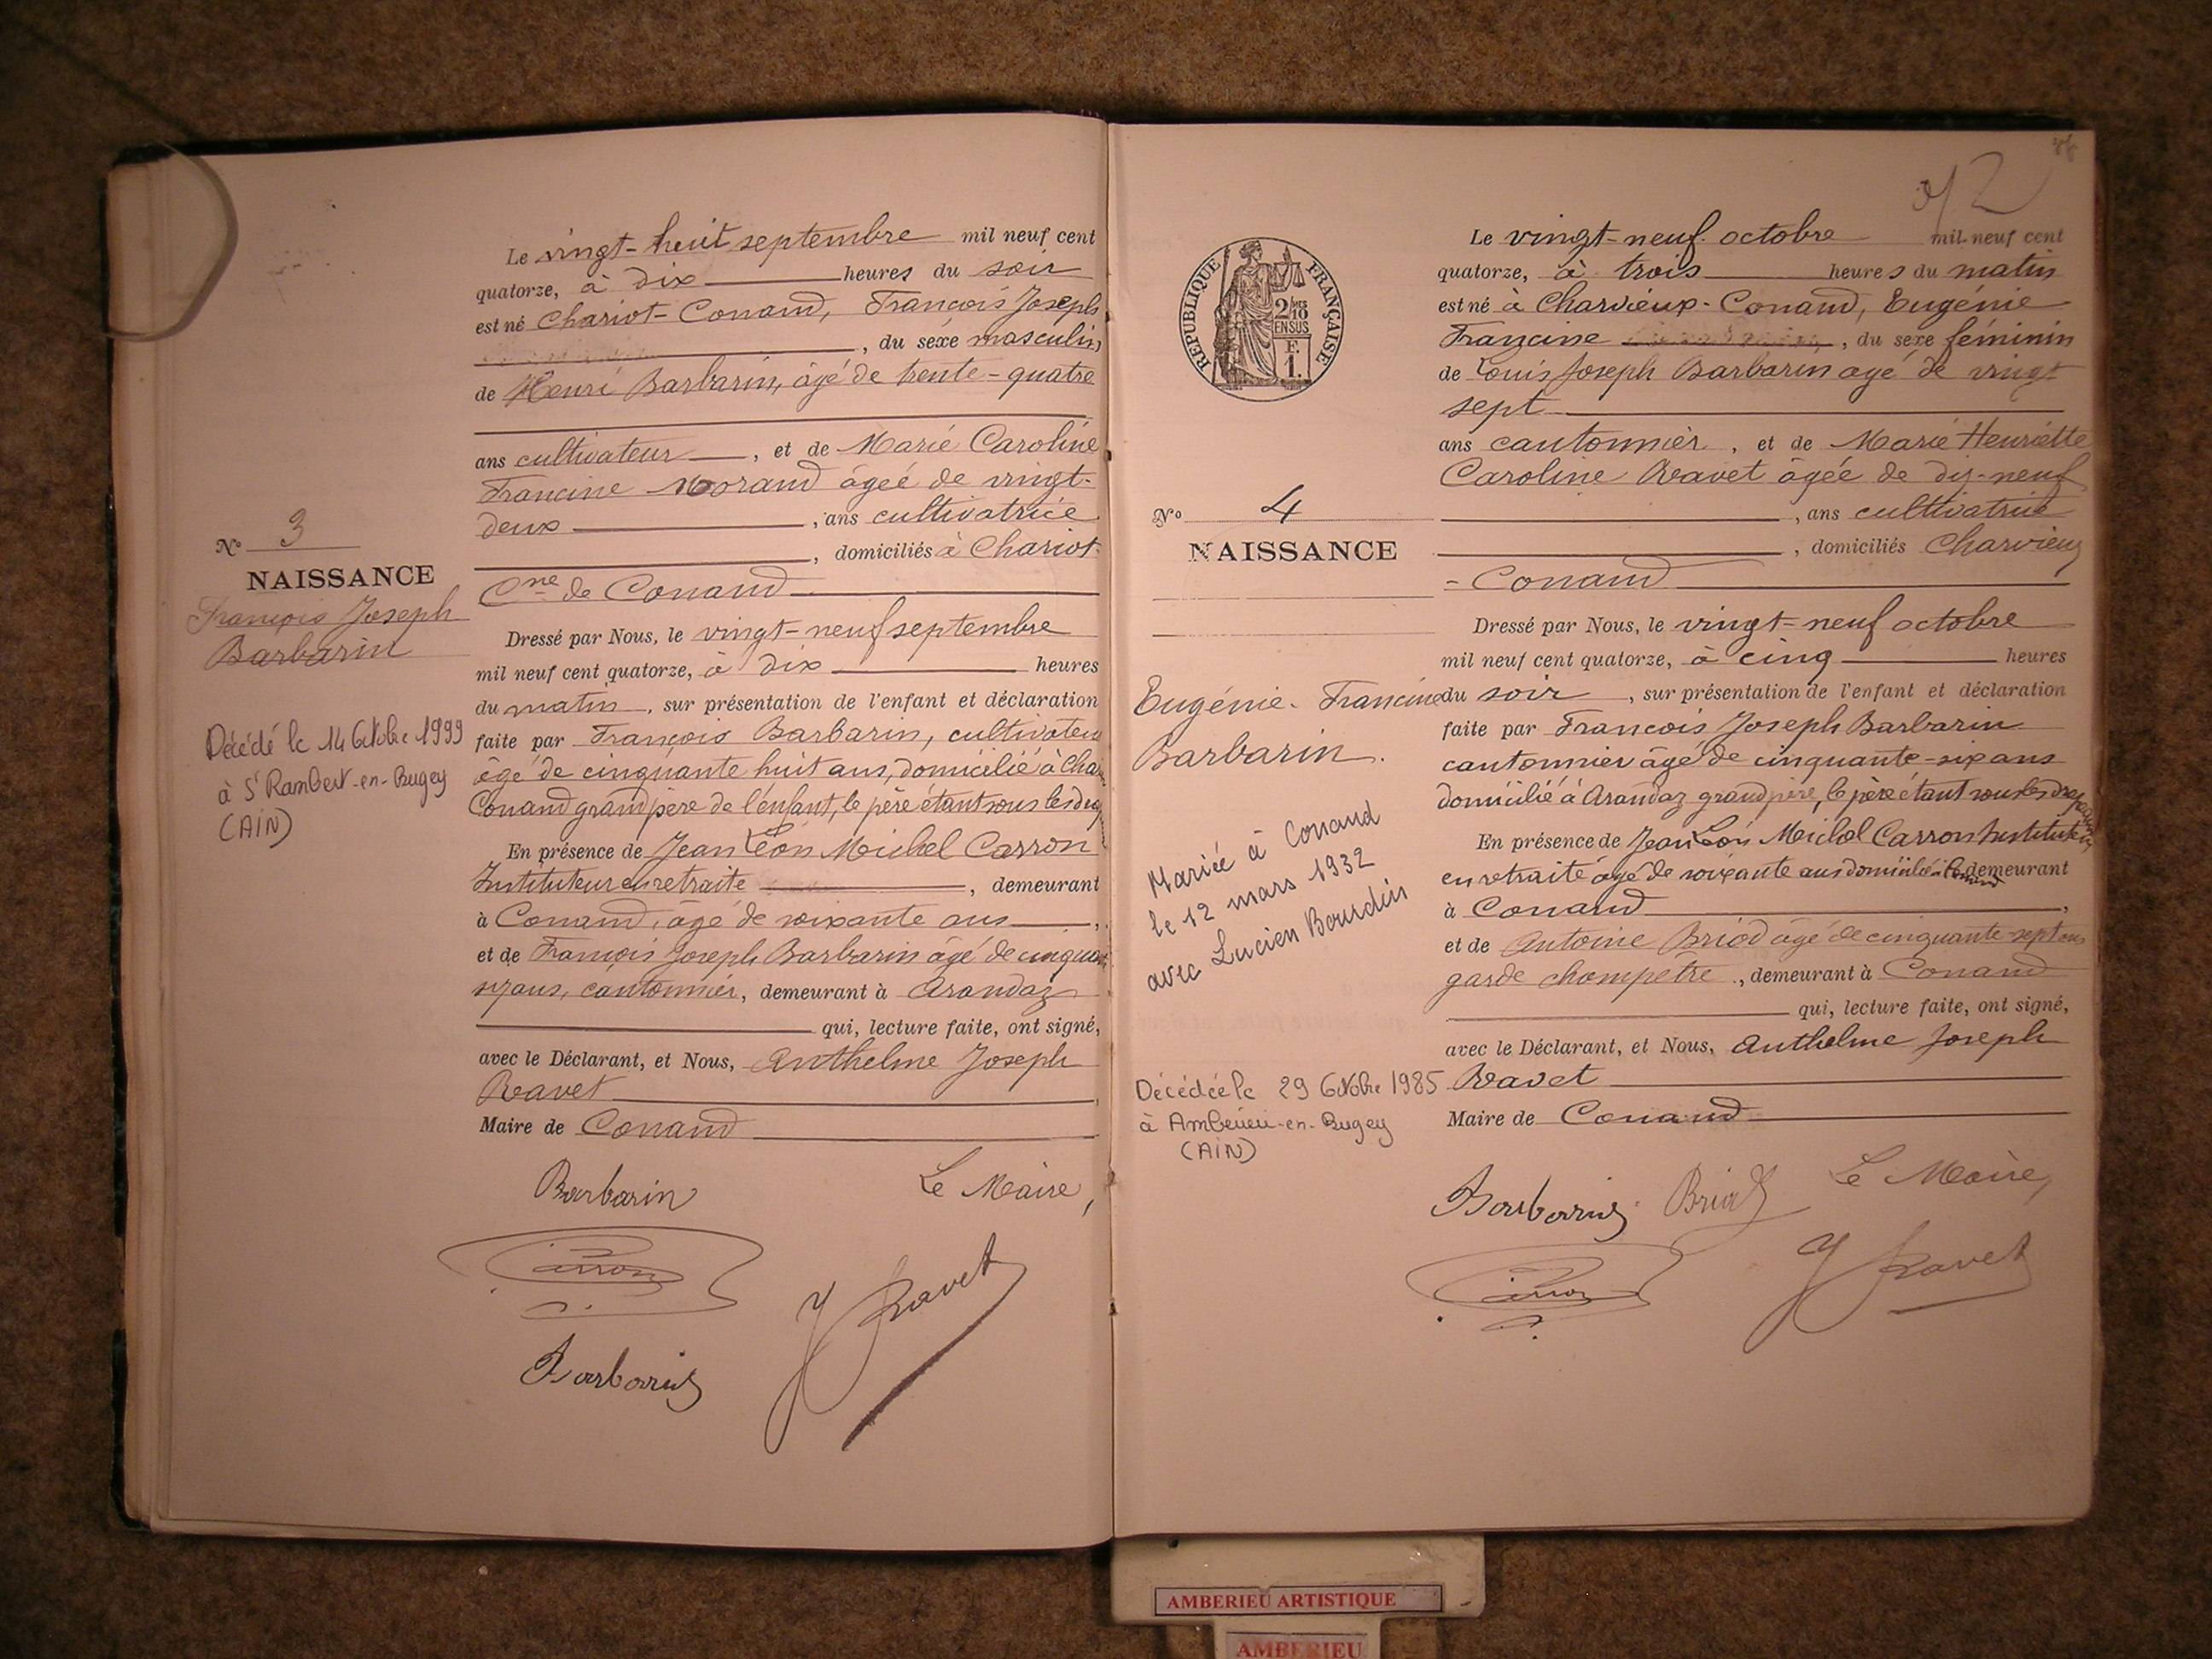 Le vingt-huit septembre mil neuf cent
quatorze, à dix heures du soir
est né Chariot-Conand, François Joseph
, du sexe masculin
de Henri Barbarin, âgé de trente-quatre
ans cultivateur, et de Marie Caroline
Francine Morand âgée de vingt-
deux, ans cultivatrice
, domiciliés à Chariot
Cne de Conand
N° 3
NAISSANCE
François Joseph
Barbarin
Décédé le 14 Octobre 1999
à St Rambert-en-Bugey
(AIN)
Dressé par Nous, le vingt-neuf septembre
mil neuf cent quatorze, à dix heures
du matin, sur présentation de l'enfant et déclaration
faite par François Barbarin, cultivateur
âgé de cinquante huit ans, domicilié à
Conand grand père de l'enfant, le père étant sous les
En présence de Jean Léon Michel Carron
Instituteur en retraite, demeurant
à Conand, âgé de soixante ans,
et de François Joseph Barbarin âgé de
six ans, cantonnier, demeurant à Arandaz
qui, lecture faite, ont signé,
avec le Déclarant, et Nous, Anthelme Joseph
Ravet
Maire de Conand
Barbarin
Le Maire,
Carron
J Ravet
Barbarin
92
RÉPUBLIQUE FRANÇAISE
2/10
EN SUS
F.
1.
Le vingt-neuf octobre mil neuf cent
quatorze, à trois heures du matin
est né à Charvieux-Conand, Eugénie
Francine, du sexe féminin
de Louis Joseph Barbarin âgé de vingt
sept
ans cantonnier, et de Marie Henriette
Caroline Ravet âgée de dix-neuf
, ans cultivatrice
, domiciliés Charvieux
-Conand
N° 4
NAISSANCE
Eugénie-Francine
Barbarin.
Mariée à Conand
le 12 mars 1932
avec Lucien Bourdin
Décédée le 29 Octobre 1985
à Ambérieu-en-Bugey
(AIN)
Dressé par Nous, le vingt-neuf octobre
mil neuf cent quatorze, à cinq heures
du soir, sur présentation de l'enfant et déclaration
faite par François Joseph Barbarin
cantonnier âgé de cinquante-six ans
domicilié à Arandaz grand père, le père étant sous les drapeaux
En présence de Jean Léon Michel Carron Instituteur
en retraite âgé de soixante ans domicilié à Conand demeurant
à Conand,
et de Antoine Briod âgé de cinquante-sept ans
garde champetre, demeurant à Conand
qui, lecture faite, ont signé,
avec le Déclarant, et Nous, Anthelme Joseph
Ravet
Maire de Conand
Barbarin Briod Le Maire,
Carron
J Ravet
AMBERIEU ARTISTIQUE
AMBERIEU